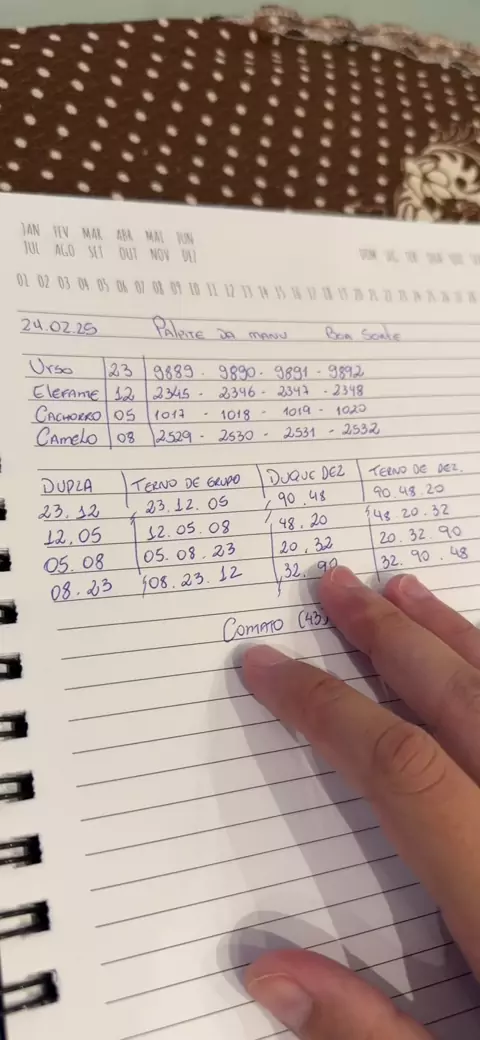 JAN FEV MAR ABR MAI JUN
JUL AGO SET OUT NOV DEZ
DOM SEG TER QUA QUI
01 02 03 04 05 06 07 08 09 10 11 12 13 14 15 16 17 18 19 20 21 22 23 24 25 26 27 28
24.02.25 PALPITE DA MANU BOA SORTE
URSO 23 9889 - 9890 - 9891 - 9892
ELEFANTE 12 2345 - 2346 - 2347 - 2348
CACHORRO 05 1017 - 1018 - 1019 - 1020
CAMELO 08 2529 - 2530 - 2531 - 2532
DUPLA TERNO DE GRUPO DUQUE DEZ TERNO DE DEZ.
23.12 23.12.05 90.48 90.48.20
12.05 12.05.08 48.20 48.20.32
05.08 05.08.23 20.32 20.32.90
08.23 08.23.12 32.90 32.90.48
(43)